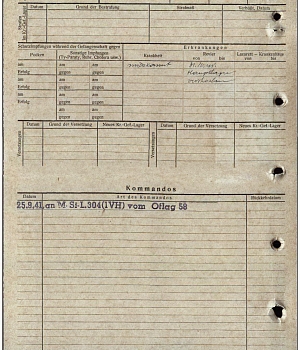 Datum Grund der Bestrafung Strafmaß Verbüßt, Datum
Schutzimpfungen während der Gefangenschaft gegen
Erkrankungen
Pocken
Sonstige Impfungen
(Ty-Paraty, Ruhr, Cholera usw.)
Krankheit
Revier
von bis
Lazarett – Krankenhaus
von bis
am am gegen
Erfolg gegen
am am
Erfolg gegen gegen
am am am
Erfolg gegen gegen
Datum Grund der Versetzung Neues Kr.-Gef.-Lager Datum Grund der Versetzung Neues Kr.-Gef.-Lager
Versetzungen
Versetzungen
Kommandos
Datum Art des Kommandos Rückkehrdatum
25.9.41, an M-St-L.304(IVH) vom Oflag 58